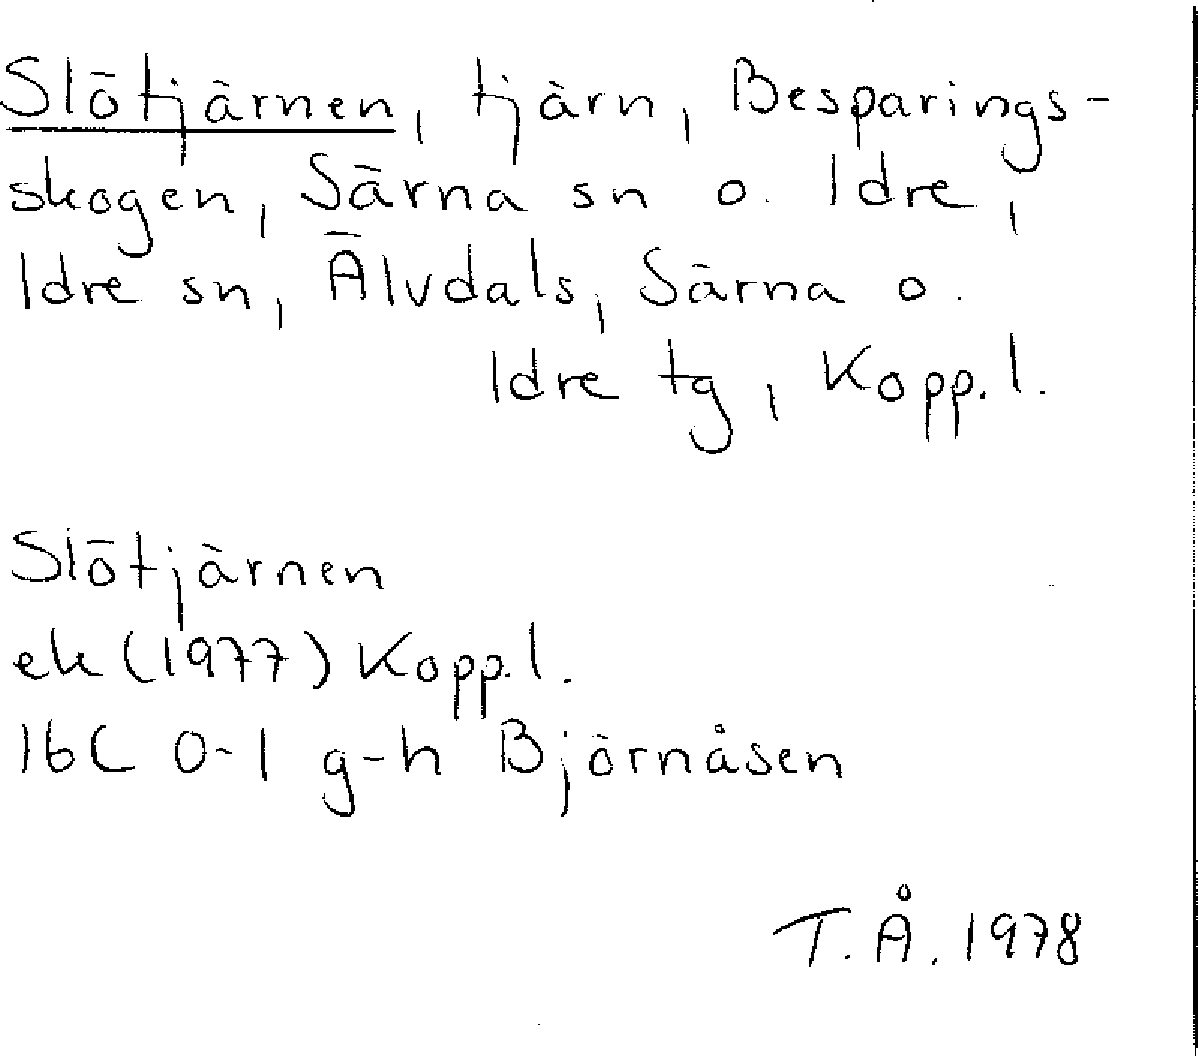 Slötjärnen, tjärn, Besparings-
skogen, Särna sn o. Idre,
Idre sn, Älvdals, Särna o.
Idre tg, Kopp. l.
Slötjärnen
ek (1977) Kopp. l.
16C 0-1 g-h Björnåsen
T.Å. 1978